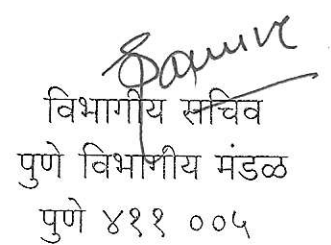 विभागीय सचिव
पुणे विभागीय मंडळ
पुणे ४११ ००५